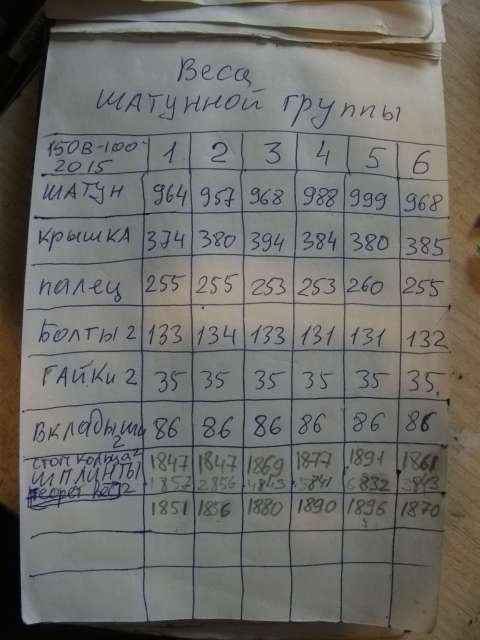 Веса
ШАТУННОЙ группы
150В-100-
2015 1 2 3 4 5 6
ШАТУН 964 957 968 988 999 968
КРЫШКА 374 380 394 384 380 385
палец 255 255 253 253 260 255
Болты 2 133 134 133 131 131 132
ГАЙКИ 2 35 35 35 35 35 35
Вкладыши 86 86 86 86 86 86
2
СТОП КОЛЬЦА 2 1847 1847 1869 1877 1891 1861
ШПЛИНТЫ
1851 1856 1880 1890 1896 1870